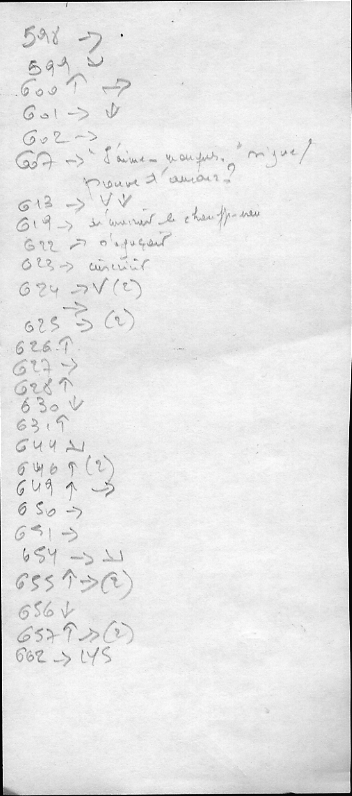 598 →
599 ↘
600 ↑ →
601 → ↓
602 →
607 → "J'aime
d'amour?
613 → ↓↓
619 → le chauffe-eau
622 → s'agaçait
623 →
624 → ↓ (2)
→
625 → (2)
626 ↑
627 →
628 ↑
630 ↓
631 ↑
644 ↘
646 ↑ (2)
649 ↑ →
650 →
651 →
654 → ↘
655 ↑ → (2)
656 ↓
657 ↑ → (2)
662 →